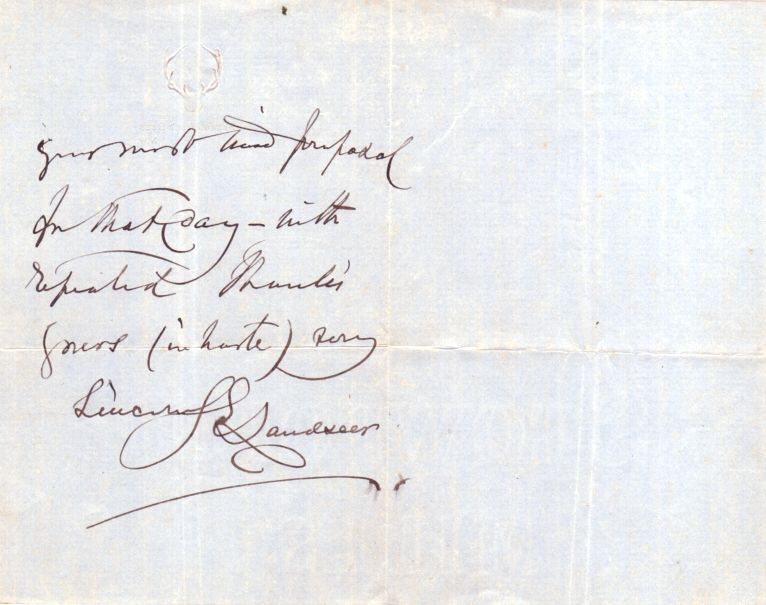 your most kind proposal
for that day – with
repeated Thanks
yours (in haste) very
Sincerely E Landseer